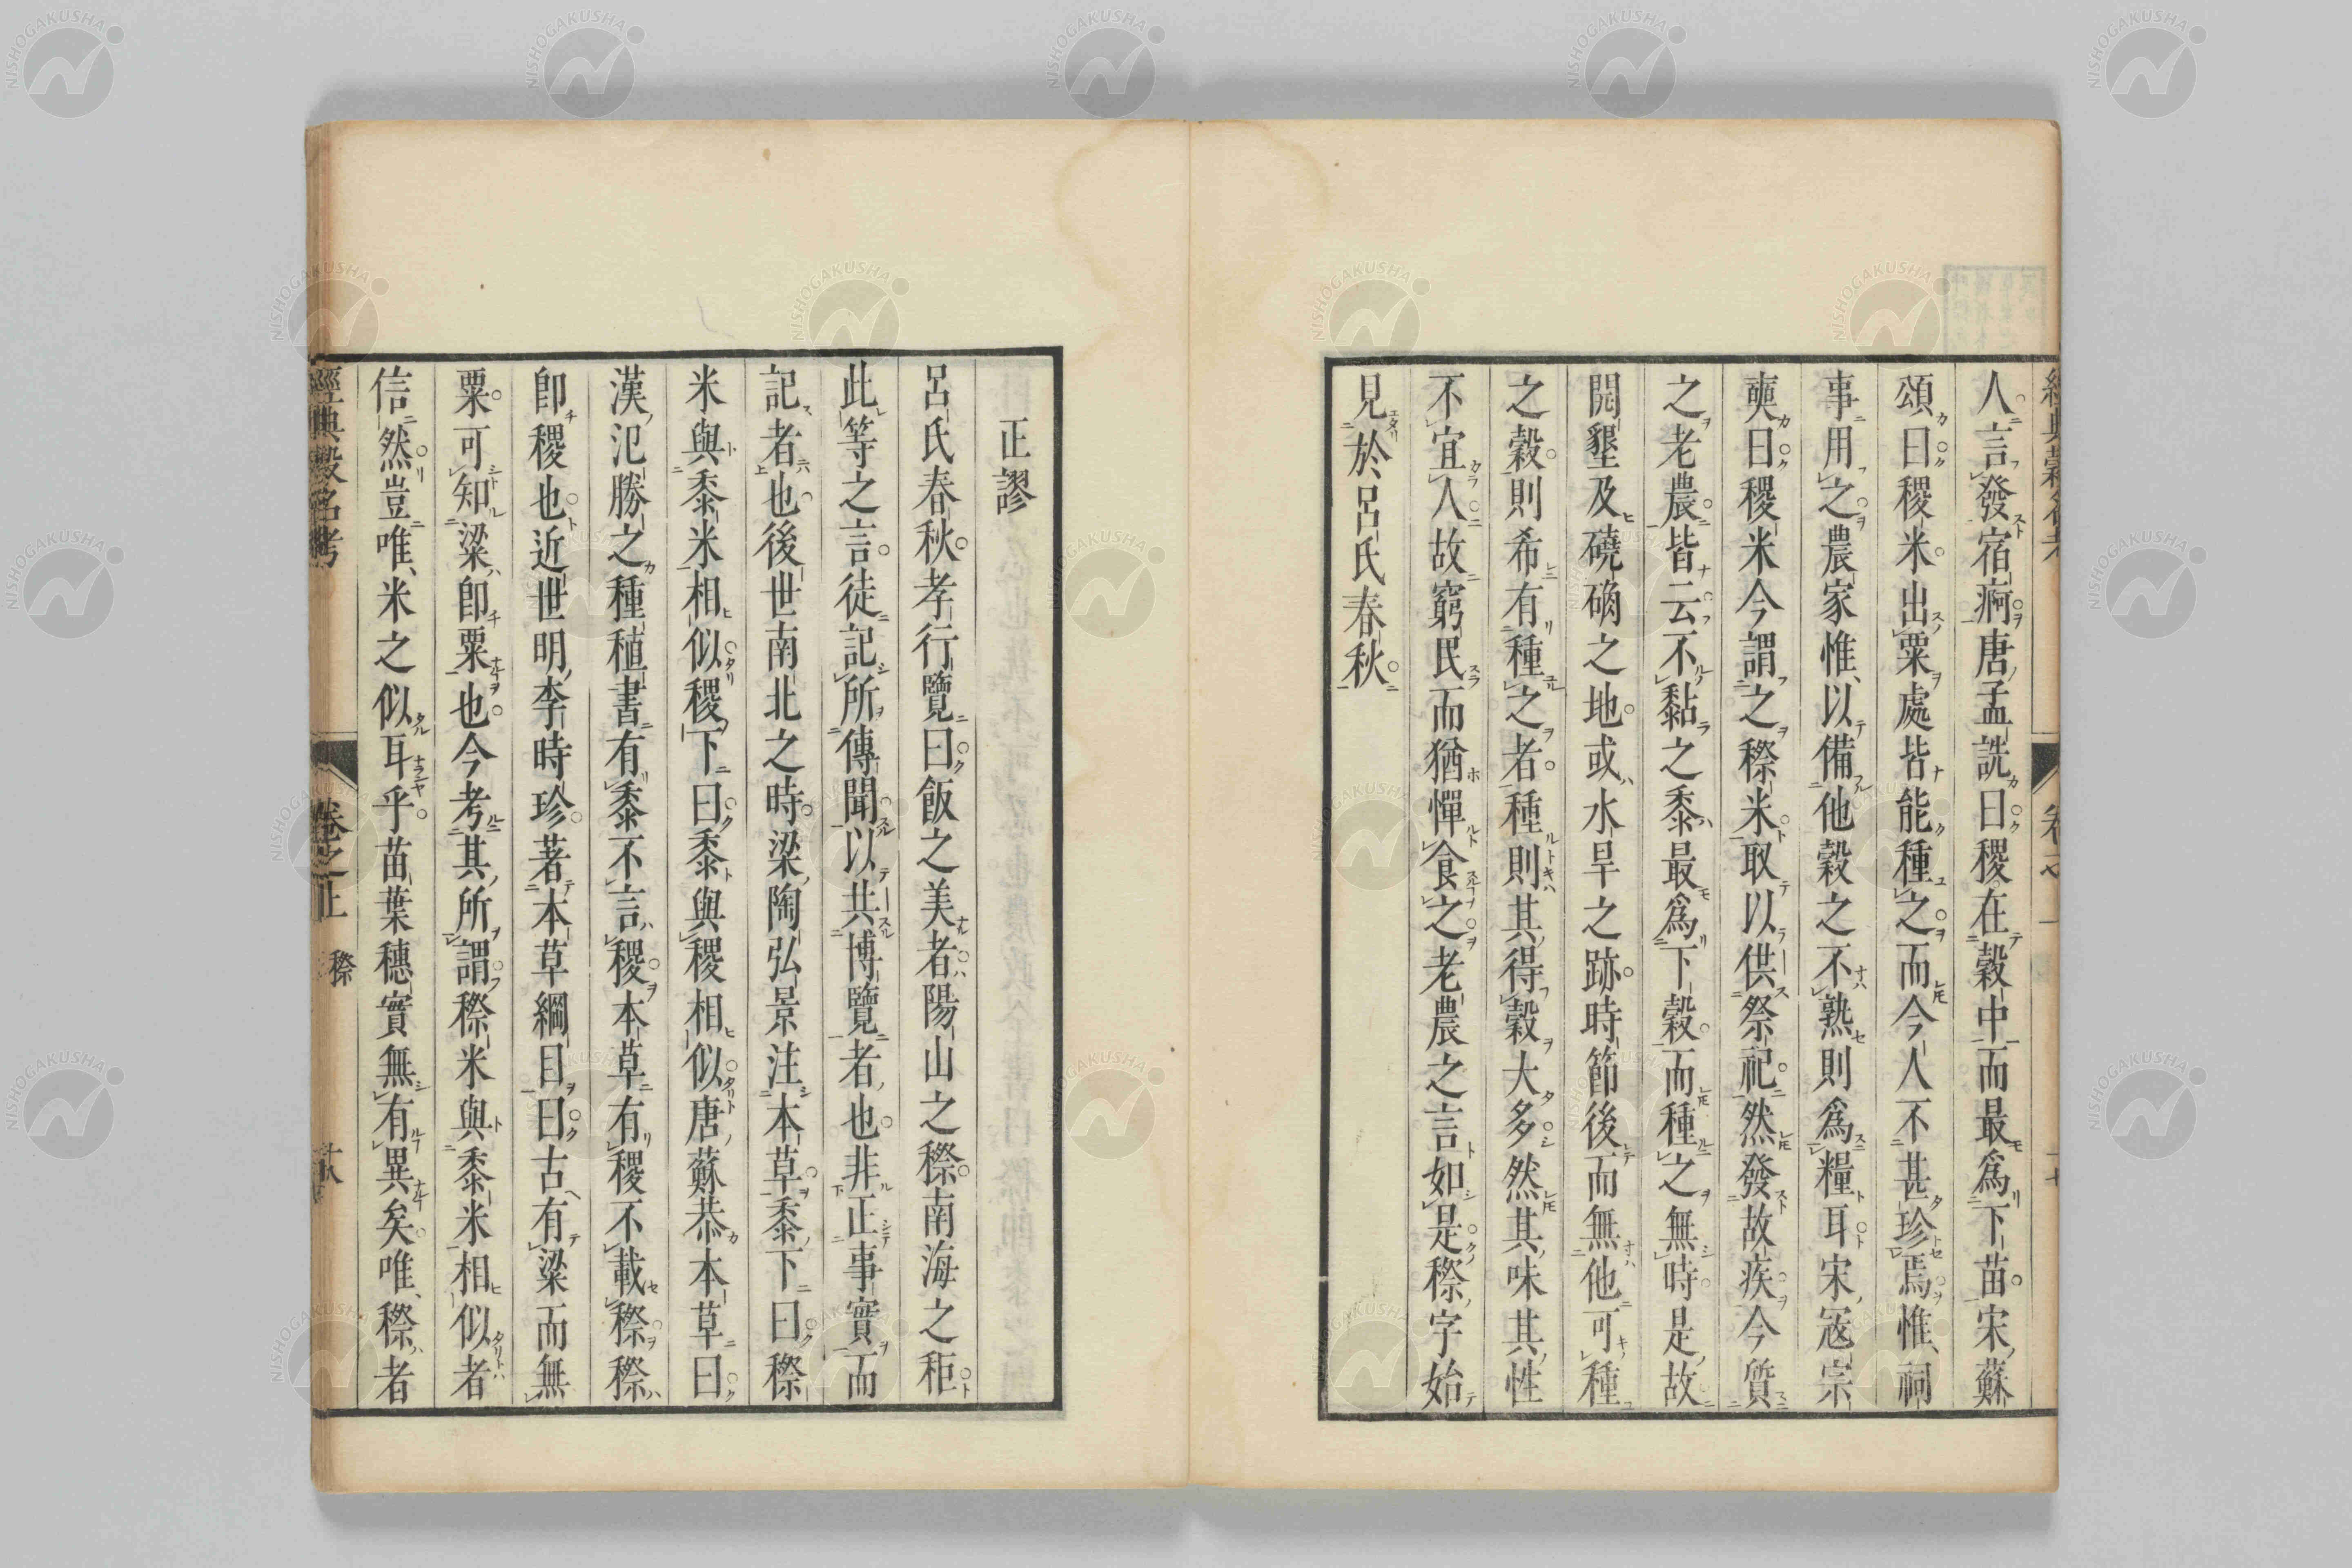 人言發宿痾唐孟詵曰稷在穀中而最爲下苗宋蘇
頌曰稷米出粟處皆能種之而今人不甚珍焉惟祠
事用之農家惟以備他穀之不熟則爲糧耳宋寇宗
奭曰稷米今謂之穄米取以供祭祀然發故疾今質
之老農皆云不黏之黍最爲下穀而種之無時是故
開墾及磽确之地或水旱之跡時節後而無他可種
之穀則希有種之者種則其得穀大多然其味其性
不宜人故窮民而猶憚食之老農之言如是穄字始
見於呂氏春秋
正謬
呂氏春秋孝行覽曰飯之美者陽山之穄南海之秬
此等之言徒記所傳聞以共博覽者也非正事實而
記者也後世南北之時梁陶弘景注本草黍下曰穄
米與黍米相似稷下曰黍與稷相似唐蘇恭本草曰
漢氾勝之種植書有黍不言稷本草有稷不載穄穄
卽稷也近世明李時珍著本草綱目曰古有粱而無
粟可知粱卽粟也今考其所謂穄米與黍米相似者
信然豈唯米之似耳乎苗葉穗實無有異矣唯穄者
經典穀名考 卷之上 穄 十八